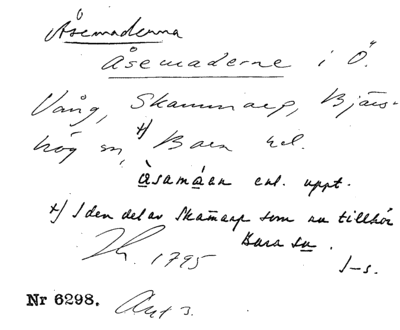 Åsemaderna
Åsemaderne i Ö.
Vång, Skammarp, Bjärs-
hög sn, x) Bara hd.
åsamáen enl. uppt.
x) I den del av Skamarp som nu tillhör
Bara sn.
1795 J-s.
Nr 6298.